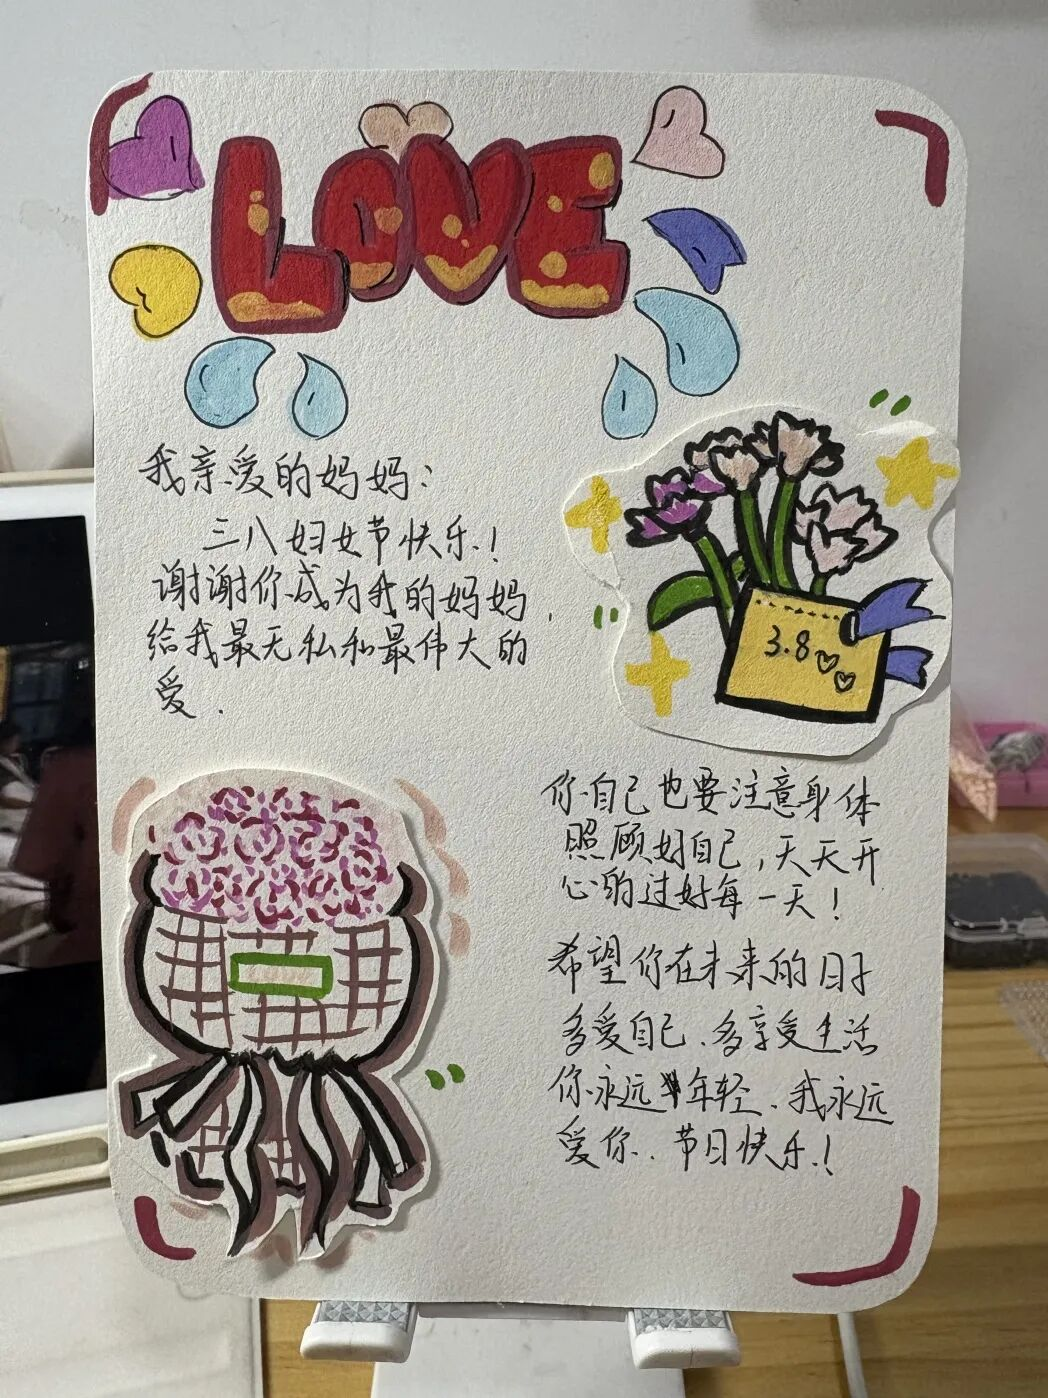 LOVE
我亲爱的妈妈：
三八妇女节快乐！
谢谢你成为我的妈妈，
给我最无私和最伟大的
爱.
3.8
你自己也要注意身体
照顾好自己，天天开
心的过好每一天！
希望你在未来的日子
多爱自己、多享受生活
你永远年轻、我永远
爱你、节日快乐！